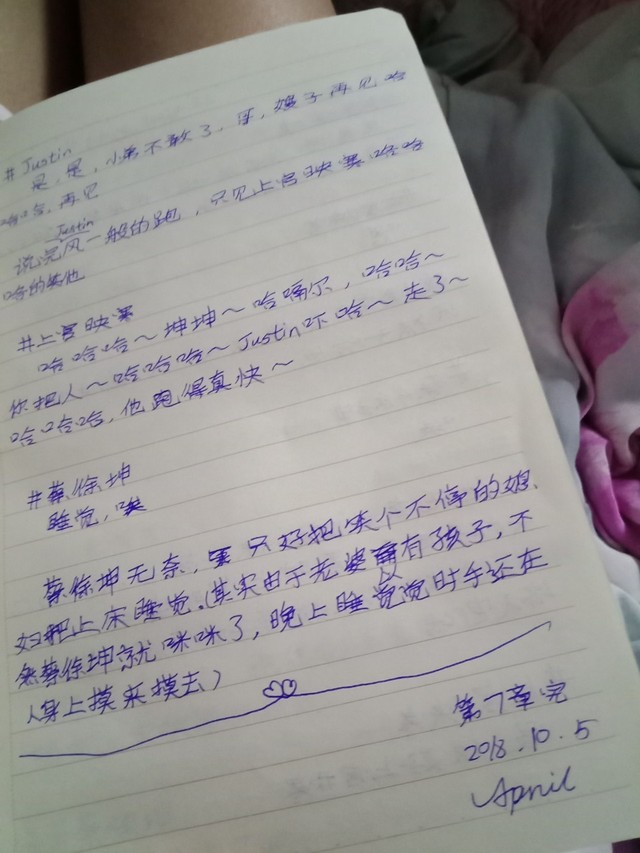 #Justin
是,是,小弟不敢了,床,嫂子再见哈
哈哈,再见
Justin
说完风一般的跑,只见上官映寒哈哈
哈的笑他
#上官映寒
哈哈哈~坤坤~哈嗝尔,哈哈~
你把人~哈哈哈~Justin吓哈~走了~
哈哈哈,他跑得真快~
#蔡徐坤
睡觉,唉
蔡徐坤无奈,只好把笑个不停的媳
妇抱上床睡觉.(其实由于老婆有孩子,不
然蔡徐坤就咪咪了,晚上睡觉觉时手还在
人身上摸来摸去)
第7章完
2018.10.5
April